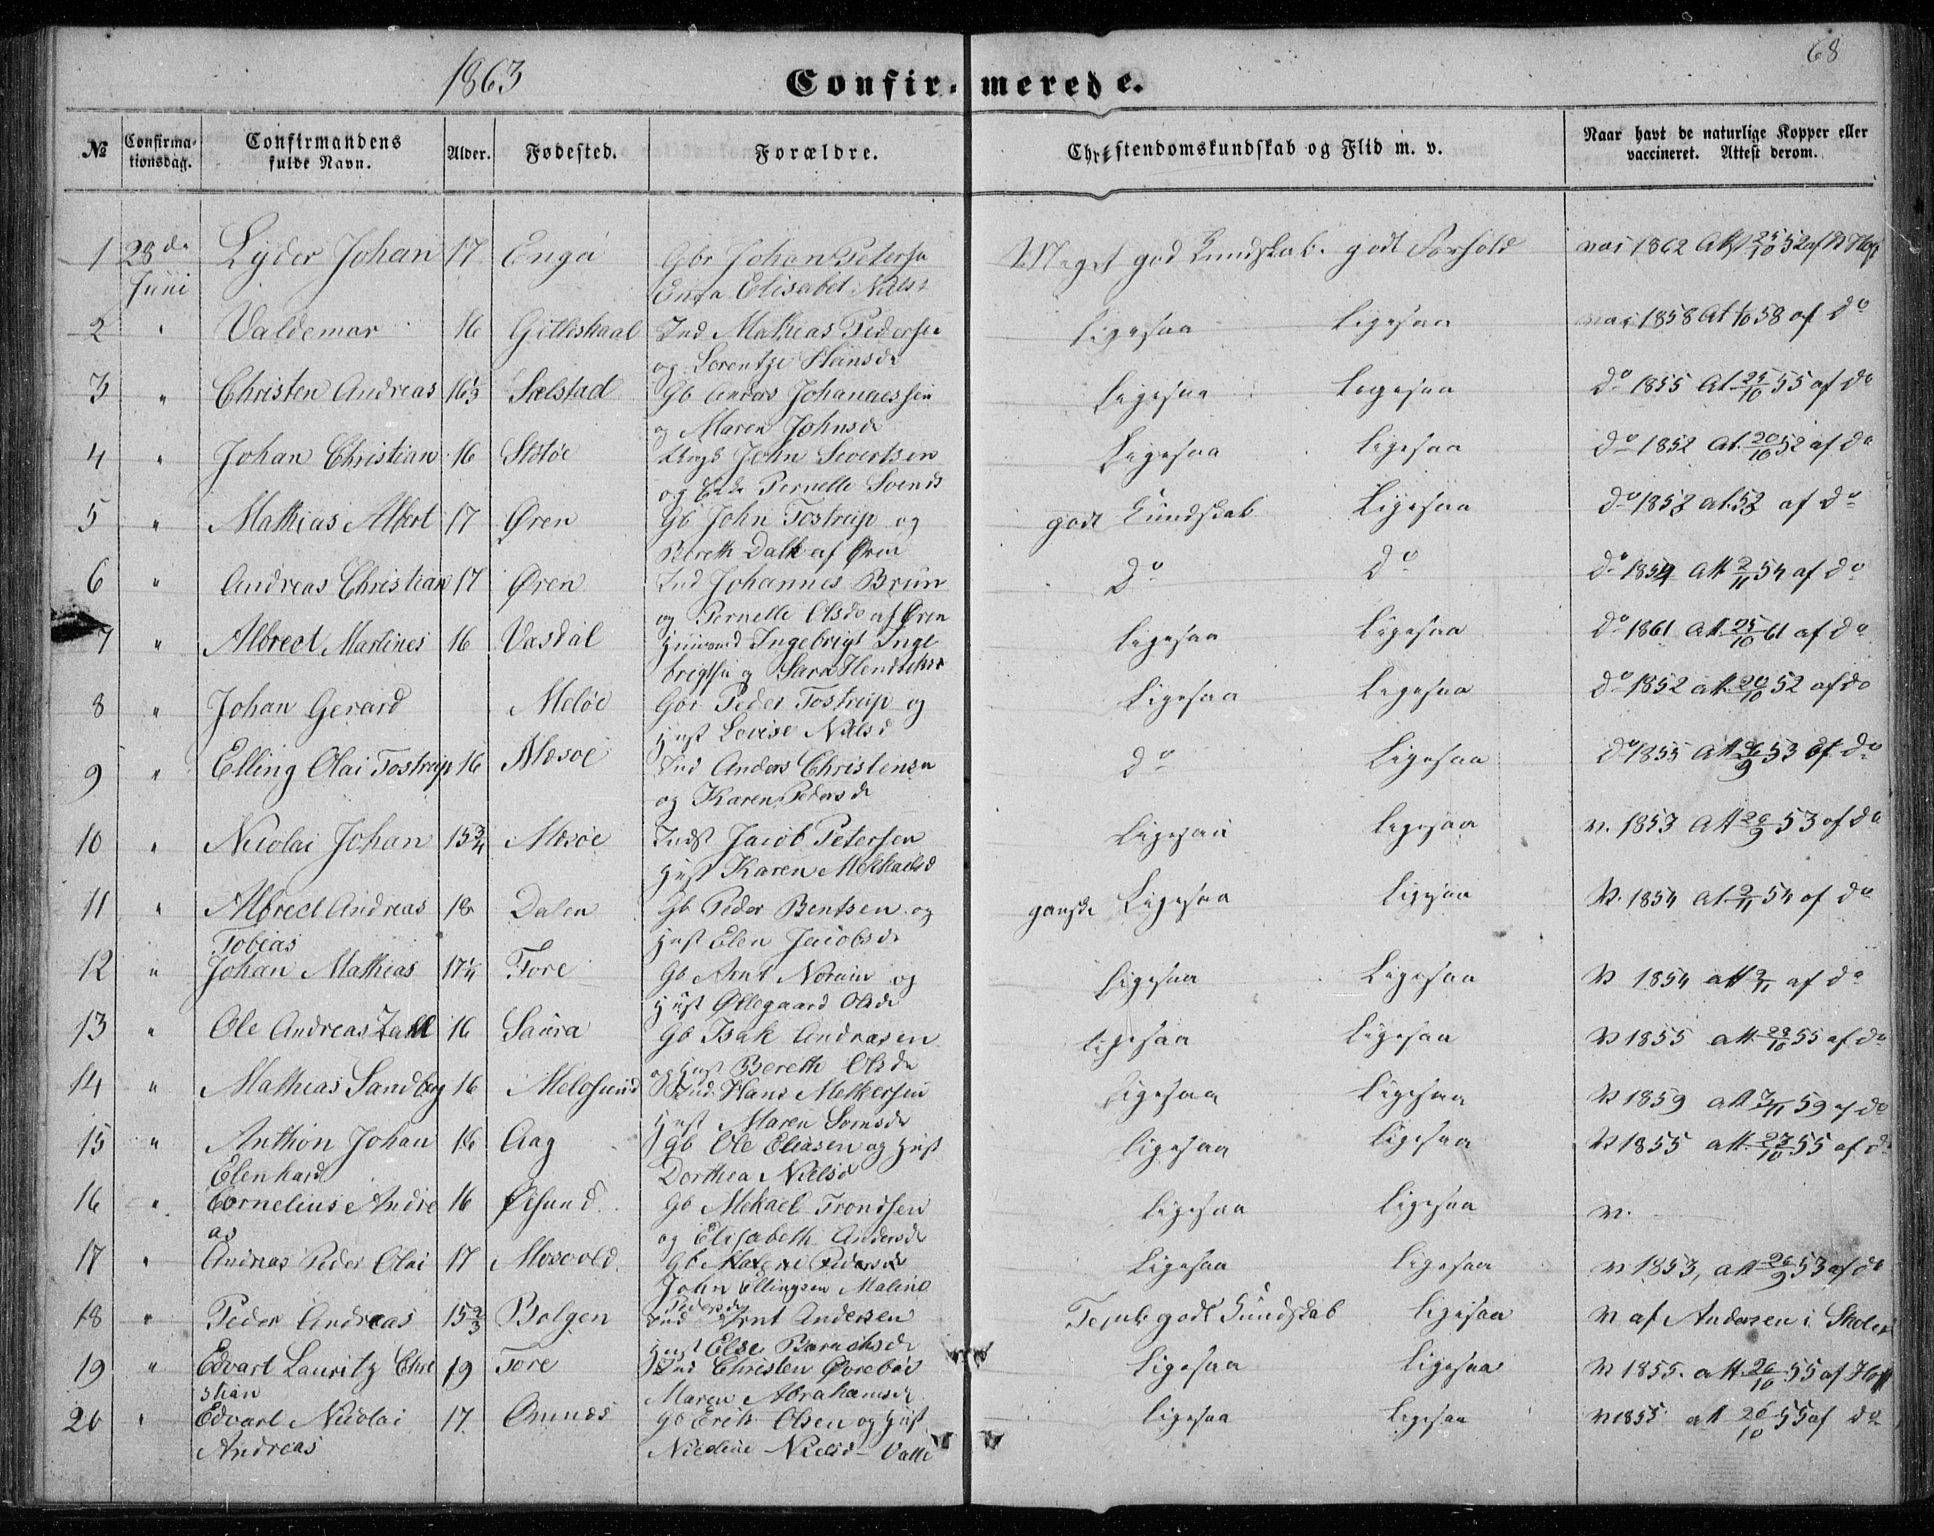 1863
Confirmerede.
68
№
Confirmationsdag.
Confirmandens fulde Navn.
Alder.
Fødested.
Forældre.
Christendomskundskab og Flid m. v.
Naar havt de naturlige Kopper eller vaccineret. Attest derom.
1 28de Juni Lyder Johan 17 Engø Gbr Johan Petersen Meget god Kundskab. godt Forhold
Elisabet Nilsd
2 " Valdemar 16 Gilleskaal Ind Mathias Pedersen Ligesaa Ligesaa 1858 af do
og Lorentze Hansd
3 " Christen Andreas 16 1/3 Selstad Gb Anders Johannessen Ligesaa Ligesaa do 1855 At. 25/10 55 af do
og Maren Johnsd
4 " Johan Christian 16 Støtøe John Sivertsen Ligesaa Ligesaa do 1852 at. 20/10 52 af do
og Pernelle Svends
5 " Mathias Albert 17 Øren Gb John Tostrup og godt Kundskab Ligesaa do 1852 at. 52 af do
Bereth Dall af Øren
6 " Andreas Christian 17 Øren Ind Johannes Brun do do do 1854 Att 2/11 54 af do
og Pernelle Olsd af Øren
7 " Albrect Martines 16 Vasdal Huusmand Ingebrigt Inge Ligesaa Ligesaa do 1861 At. 25/10 61 af do
brigtsen og Sara
8 " Johan Gerard Meløe Gbr Peder Tostrup og Ligesaa Ligesaa do 1852 att. 20/10 52 af do
Hust Lovise Nilsd
9 " Elling Olai Tostrup 16 Mesøe Ind Anders Christensen do Ligesaa do 1855 Att 53 af do
og Karen Pedersd
10 " Nicolai Johan 15 3/4 Mesøe Indst Jacob Petersen Ligesaa Ligesaa v. 1853 Att 26/9 53 af do
Hust Karen Mekkelsd
11 " Albrect Andreas 18 Dalen Gb Peder Bentsen og ganske Ligesaa Ligesaa V. 1854 At. 2/11 54 af do
Tobias Hust Elen Jacobsd
12 " Johan Mathias 17 1/4 Fore Gb Arnt og Ligesaa Ligesaa V 1854 att 2/11 af do
Hust Øllegaard Olsd
13 " Ole Andreas Zall 16 Saura Gb Isak Andrasen Ligesaa Ligesaa V 1855 att. 29/10 55 af do
og Hust Bereth Olsd
14 " Mathias Sandberg 16 Meløsund Ind Hans Melkersen Ligesaa Ligesaa V 1859 att 3/11 59 af do
Hust Maren
15 " Anthon Johan 16 Aag Gb Ole Eliasen og Hust Ligesaa Ligesaa V 1855 att. 27/10 55 af do
Elenhard Dorthea Nielsd
16 " Cornelius Andre 16 Øesund Gb Mekael Trondsen Ligesaa Ligesaa v.
as og Elisabeth Andersd
17 " Andreas Peder Olai 17 Mosvold Gb Pedersd Ligesaa Ligesaa v 1853, att 26/9 53 af do
John Ellingsen Malena
Pedersd
18 " Peder Andreas 15 2/3 Bolgen Ind Arnt Andersen godt Kundskab Ligesaa V af Andersen i
Hust Else
19 " Edvart Lauritz Chri 19 Fore Ind Christen Øvrebøe Ligesaa Ligesaa V 1855. att. 26/10 55 af
stian Maren Abrahamsd
20 " Edvart Nicolai 17 Ørnæs Gb Erik Olsen og Hust Ligesaa Ligesaa V 1855 att 26/10 55 af do
Andreas Nicoline Nielsd Valle